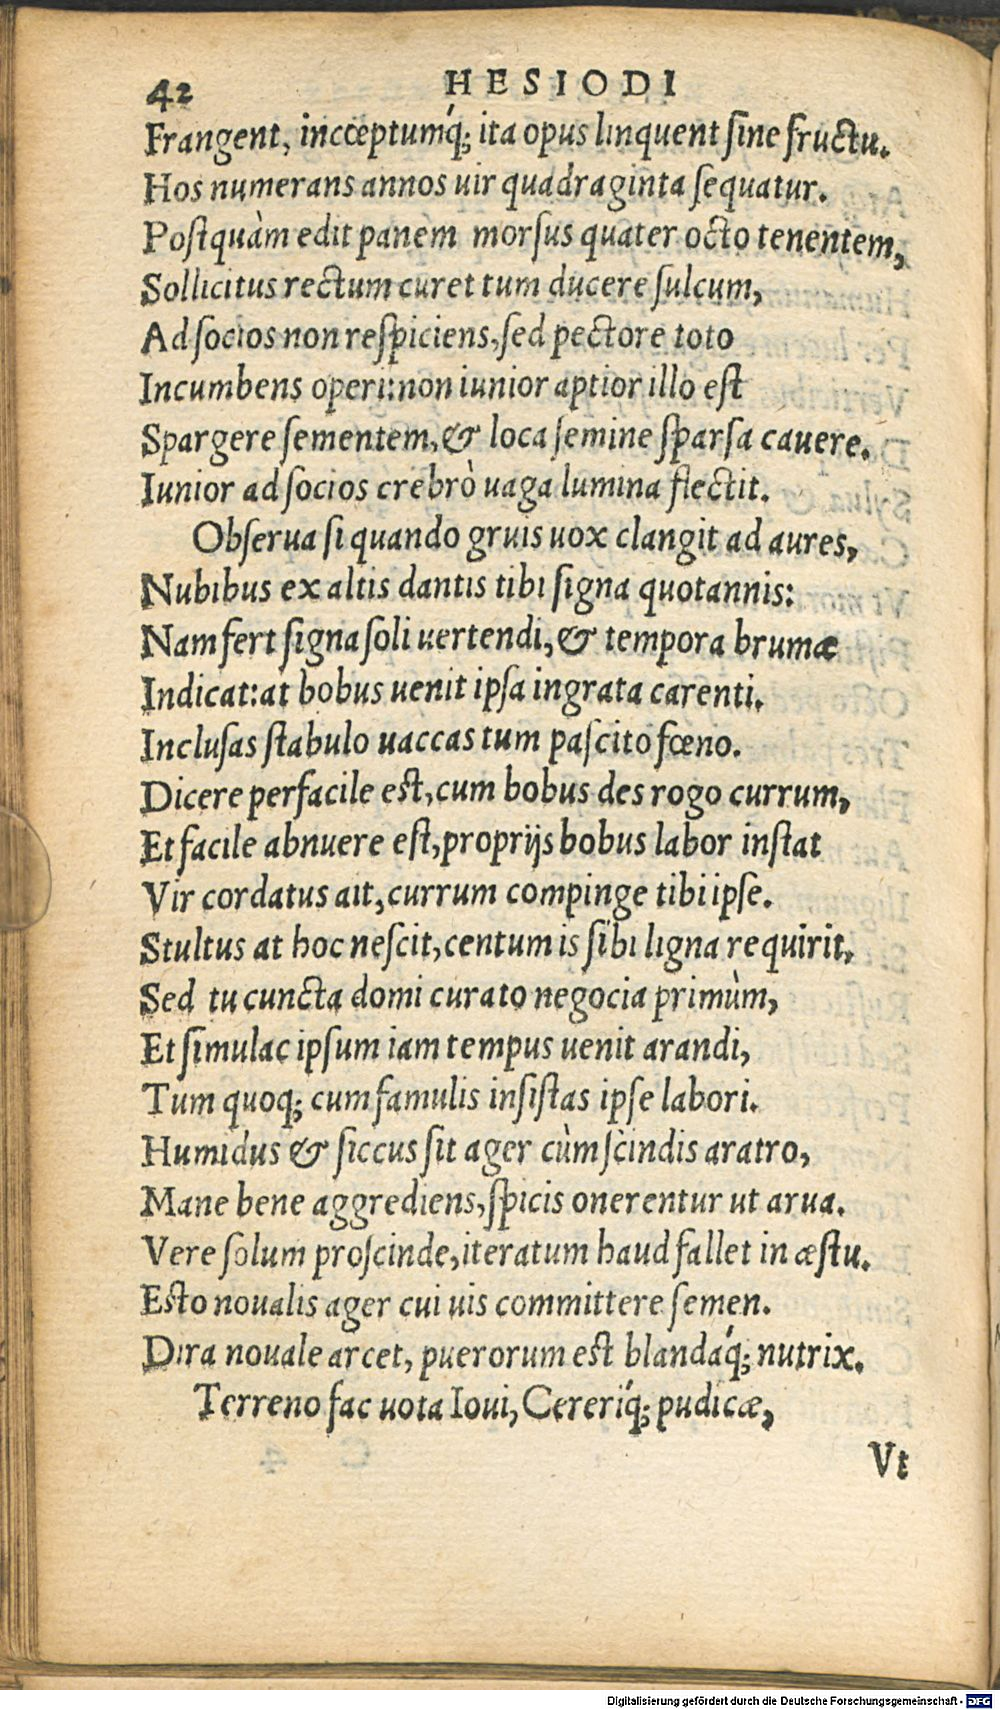 42 HESIODI
Frangent, incœptumq́; ita opus linquent sine fructu.
Hos numerans annos uir quadraginta sequatur.
Postquàm edit panem morsus quater octo tenentem,
Sollicitus rectum curet tum ducere sulcum,
Ad socios non respiciens, sed pectore toto
Incumbens operi: non iunior aptior illo est
Spargere sementem, & loca semine sparsa cauere.
Iunior ad socios crebrò uaga lumina flectit.
Obserua si quando gruis uox clangit ad aures,
Nubibus ex altis dantis tibi signa quotannis:
Nam fert signa soli uertendi, & tempora brumæ
Indicat: at bobus uenit ipsa ingrata carenti.
Inclusas stabulo uaccas tum pascito fœno.
Dicere perfacile est, cum bobus des rogo currum,
Et facile abnuere est, proprijs bobus labor instat
Vir cordatus ait, currum compinge tibi ipse.
Stultus at hoc nescit, centum is sibi ligna requirit,
Sed tu cuncta domi curato negocia primùm,
Et simulac ipsum iam tempus uenit arandi,
Tum quoq; cum famulis insistas ipse labori.
Humidus & siccus sit ager cùm scindis aratro,
Mane bene aggrediens, spicis onerentur ut arua.
Vere solum proscinde, iteratum haud fallet in æstu.
Esto noualis ager cui uis committere semen.
Dira nouale arcet, puerorum est blandaq́; nutrix.
Terreno fac uota Ioui, Cereriq́; pudicæ,
Vt
Digitalisierung gefördert durch die Deutsche Forschungsgemeinschaft - DFG